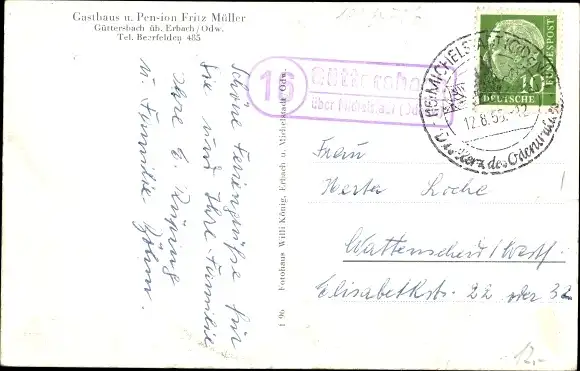 Gasthaus u. Pension Fritz Müller
Güttersbach üb. Erbach/Odw.
Tel. Beerfelden 485
Schöne Feriengrüße für
Sie und Ihre Familie
Ihre E. Rüping
u. Familie Böhm.
Fotohaus Willi König, Erbach u. Michelstadt/Odw.
196
16
Güttersbach
über Michelstadt (Odw)
(16) MICHELSTADT (ODENW)
12.8.56.-12
Das Herz des Odenwaldes
DEUTSCHE BUNDESPOST
10
Frau
Herta Loche
Wattenscheid/Westf.
Elisabethstr. 22 oder 32
12,-